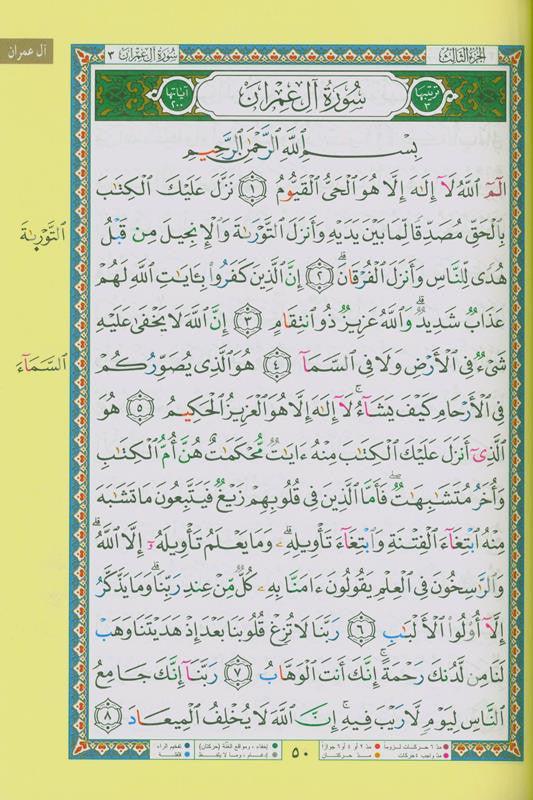 آل عمران
الجُزءُ الثَّالِث سُورَةُ آلِ عِمْرَان ٣
تَرتيبُها ٣ سُورَةُ آلِ عِمْرَان آيَاتُهَا ٢٠٠
بِسْمِ اللَّهِ الرَّحْمَٰنِ الرَّحِيمِ
الٓمٓ اللَّهُ لَآ إِلَٰهَ إِلَّا هُوَ الْحَىُّ الْقَيُّومُ ١ نَزَّلَ عَلَيْكَ الْكِتَٰبَ
بِالْحَقِّ مُصَدِّقًا لِّمَا بَيْنَ يَدَيْهِ وَأَنزَلَ التَّوْرَىٰةَ وَالْإِنجِيلَ مِن قَبْلُ
التَّوْرَىٰةَ
هُدًى لِّلنَّاسِ وَأَنزَلَ الْفُرْقَانَ ۗ ٢ إِنَّ الَّذِينَ كَفَرُوا۟ بِـَٔايَٰتِ اللَّهِ لَهُمْ
عَذَابٌ شَدِيدٌ ۗ وَاللَّهُ عَزِيزٌ ذُو انتِقَامٍ ٣ إِنَّ اللَّهَ لَا يَخْفَىٰ عَلَيْهِ
شَىْءٌ فِى الْأَرْضِ وَلَا فِى السَّمَآءِ ٤ هُوَ الَّذِى يُصَوِّرُكُمْ
السَّمَآءِ
فِى الْأَرْحَامِ كَيْفَ يَشَآءُ ۚ لَآ إِلَٰهَ إِلَّا هُوَ الْعَزِيزُ الْحَكِيمُ ٥ هُوَ
الَّذِىٓ أَنزَلَ عَلَيْكَ الْكِتَٰبَ مِنْهُ ءَايَٰتٌ مُّحْكَمَٰتٌ هُنَّ أُمُّ الْكِتَٰبِ
وَأُخَرُ مُتَشَٰبِهَٰتٌ ۖ فَأَمَّا الَّذِينَ فِى قُلُوبِهِمْ زَيْغٌ فَيَتَّبِعُونَ مَا تَشَٰبَهَ
مِنْهُ ابْتِغَآءَ الْفِتْنَةِ وَابْتِغَآءَ تَأْوِيلِهِۦ ۗ وَمَا يَعْلَمُ تَأْوِيلَهُۥٓ إِلَّا اللَّهُ ۗ
وَالرَّٰسِخُونَ فِى الْعِلْمِ يَقُولُونَ ءَامَنَّا بِهِۦ كُلٌّ مِّنْ عِندِ رَبِّنَا ۗ وَمَا يَذَّكَّرُ
إِلَّآ أُو۟لُوا۟ الْأَلْبَٰبِ ٦ رَبَّنَا لَا تُزِغْ قُلُوبَنَا بَعْدَ إِذْ هَدَيْتَنَا وَهَبْ
لَنَا مِن لَّدُنكَ رَحْمَةً ۚ إِنَّكَ أَنتَ الْوَهَّابُ ٧ رَبَّنَآ إِنَّكَ جَامِعُ
النَّاسِ لِيَوْمٍ لَّا رَيْبَ فِيهِ ۚ إِنَّ اللَّهَ لَا يُخْلِفُ الْمِيعَادَ ٨
مدّ ٦ حركات لزوماً مدّ ٢ أو ٤ أو ٦ جوازاً ٥٠ إخفاء، ومواقع الغُنَّة (حركتان) تفخيم الراء
مدّ واجب ٤ حركات مدّ حركتان إدغام، وما لا يُلفظ قلقلة